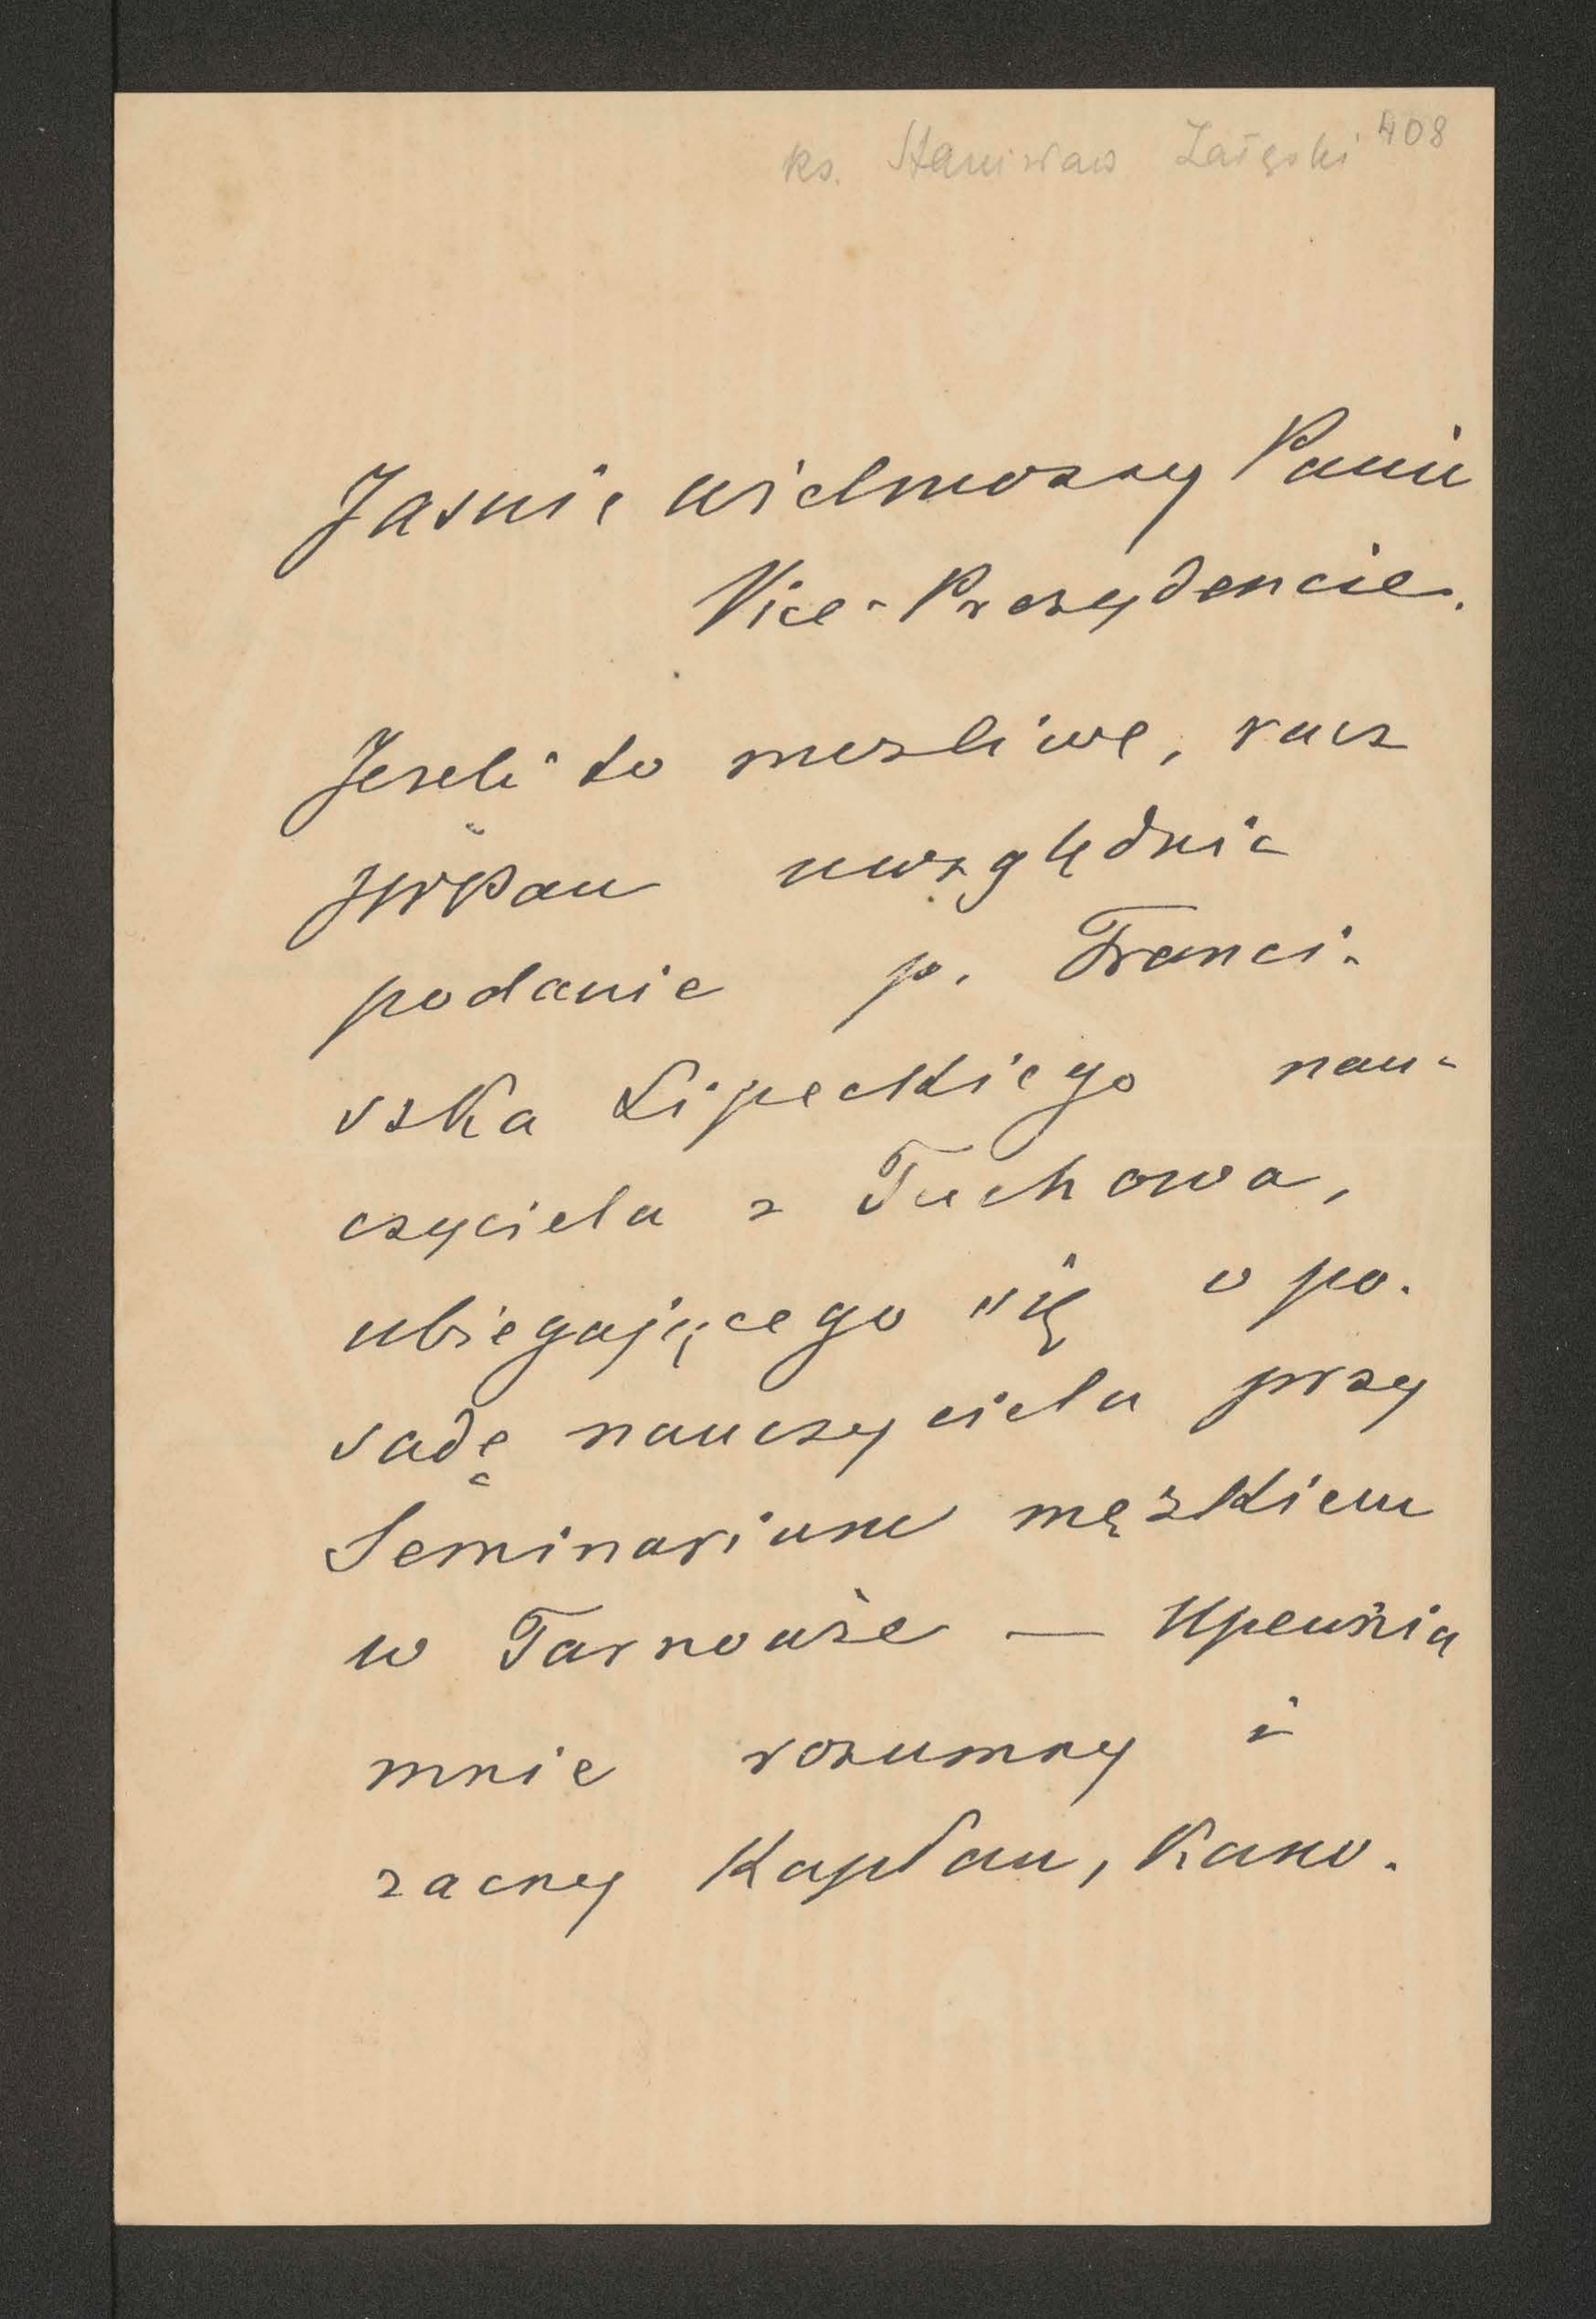 ks. Stanisław Załęski 408
Jasnie Wielmozny Panie
Vice-Prezydencie.
Jezeli to mozliwe, racz
JWPan uwzględnic
podanie p. Franci-
szka Lipeckiego nau-
czyciela z Tuchowa,
ubiegającego się o po-
sadę nauczyciela przy
Seminarium męzkiem
w Tarnowie — Upewnia
mnie rozumny i
zacny Kapłan, Kano-